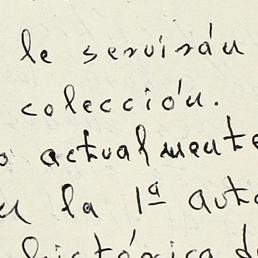 le servirán
colección.
o actualmente
la 1ª auto
histórica de